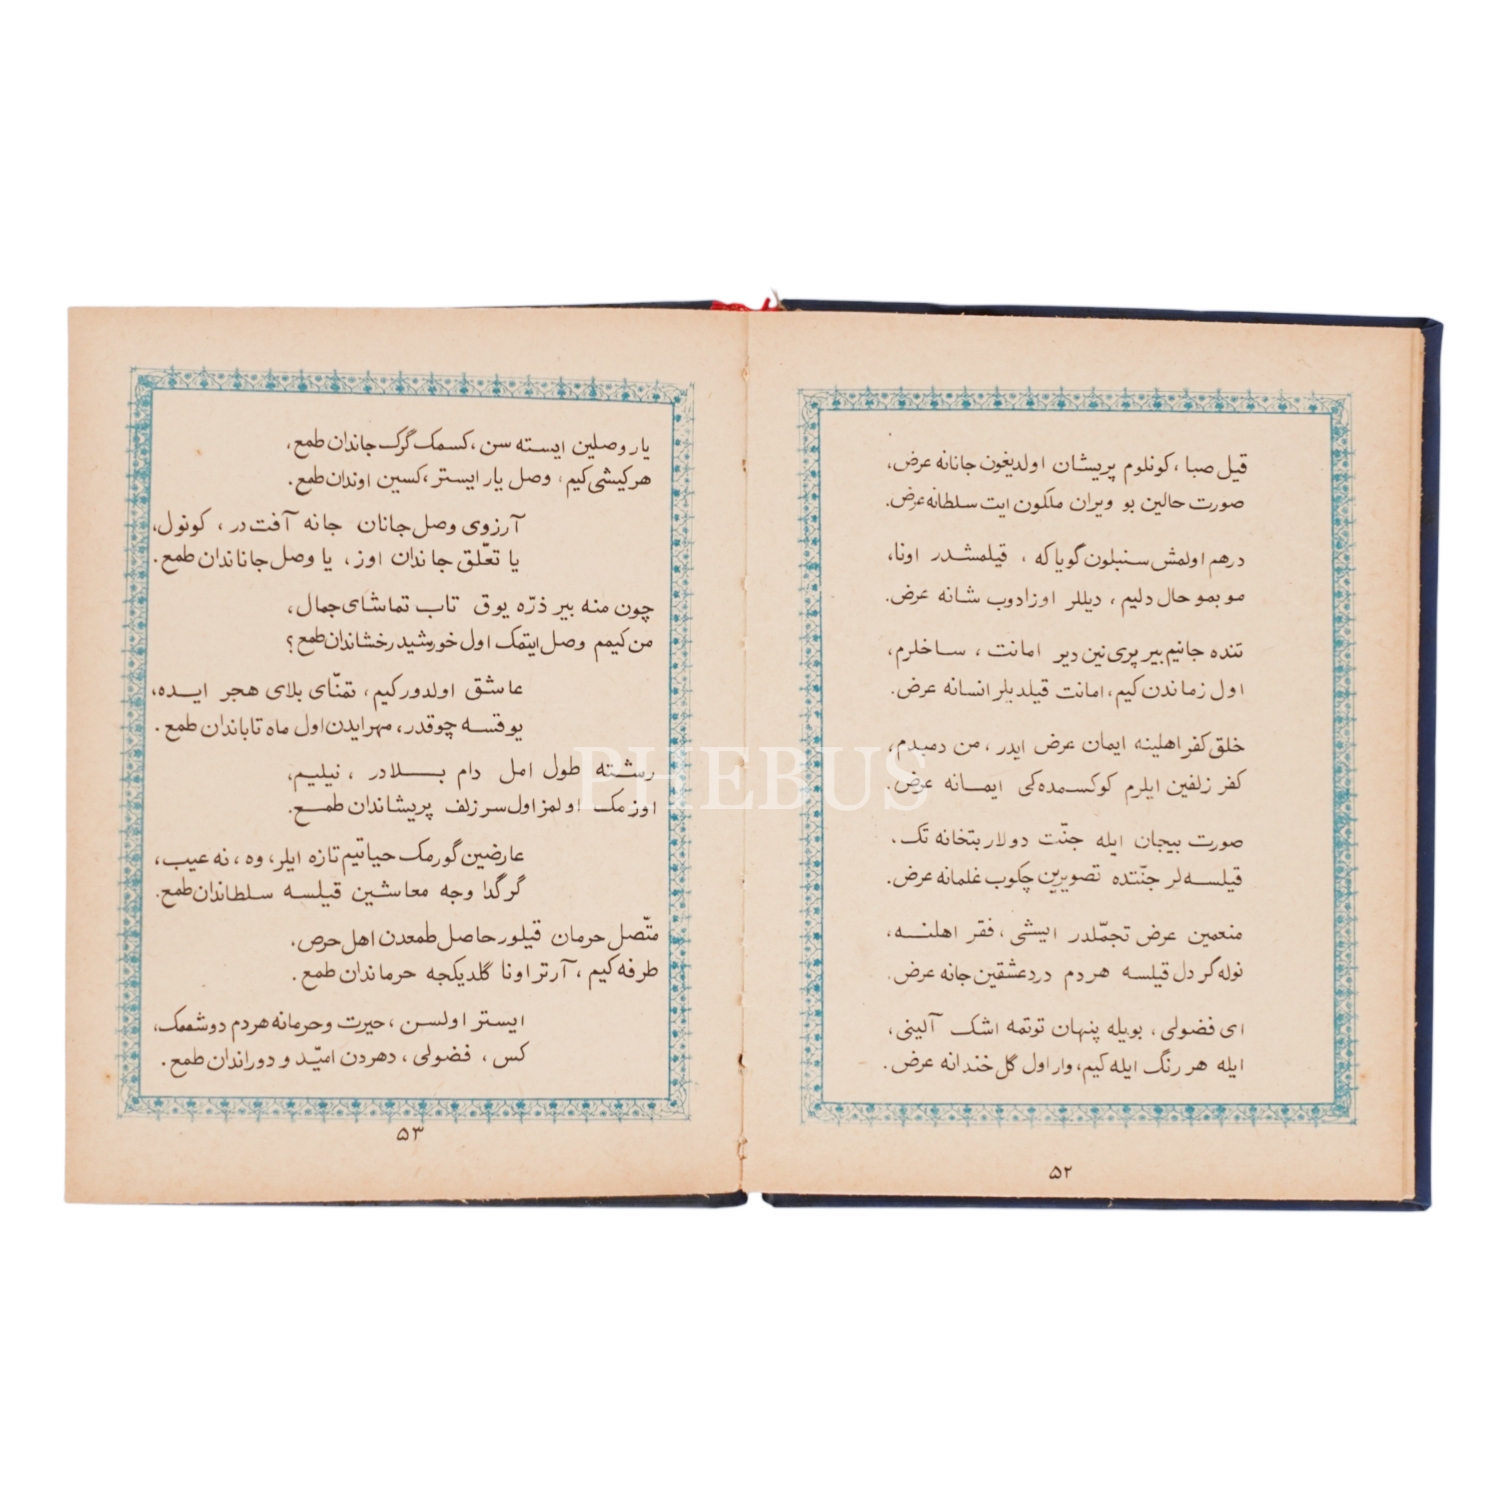 قیل صبا، کونلوم پریشان اولدیغون جانانه عرض،
صورت حالین بو ویران ملکون ایت سلطانه عرض.
درهم اولمش سنبلون گویا که ، قیلمشدر اونا،
موبمو حال دلیم، دیللر اوزادوب شانه عرض.
تنده جانیم بیر پری نین دیر امانت ، ساخلرم،
اول زماندن کیم، امانت قیلدیلر انسانه عرض.
خلق کفر اهلینه ایمان عرض ایدر، من دمبدم،
کفر زلفین ایلرم کوکسمده کی ایمانه عرض.
صورت بیجان ایله جنّت دولار بتخانه تک،
قیلسه لر جنّتده تصویرین چکوب غلمانه عرض.
منعمین عرض تجمّلدر ایشی، فقر اهلنه،
نوله گر دل قیلسه هردم درد عشقین جانه عرض.
ای فضولی، بویله پنهان توتمه اشک آلینی،
ایله هر رنگ ایله کیم، وار اول گل خندانه عرض.
۵۲
یار وصلین ایسته سن، کسمک گرک جاندان طمع،
هر کیشی کیم، وصل یار ایستر، کسین اوندان طمع.
آرزوی وصل جانان جانه آفت در، کونول،
یا تعّلق جاندان اوز، یا وصل جاناندان طمع.
چون منه بیر ذرّه یوق تاب تماشای جمال،
من کیمم وصل ایتمک اول خورشید رخشاندان طمع؟
عاشق اولدور کیم، تمنّای بلای هجر ایده،
یوقسه چوقدر، مهر ایدن اول ماه تاباندان طمع.
رشته طول امل دام بلادر ، نیلیم،
اوزمک اولمز اول سر زلف پریشاندان طمع.
عارضین گورمک حیاتیم تازه ایلر، وه، نه عیب،
گر گدا وجه معاشین قیلسه سلطاندان طمع.
متّصل حرمان قیلور حاصل طمعدن اهل حرص،
طرفه کیم، آرتر اونا گلدیکجه حرماندان طمع.
ایستر اولسن، حیرت و حرمانه هردم دوشممک،
کس، فضولی، دهردن امیّد و دوراندان طمع.
۵۳
PHEBUS